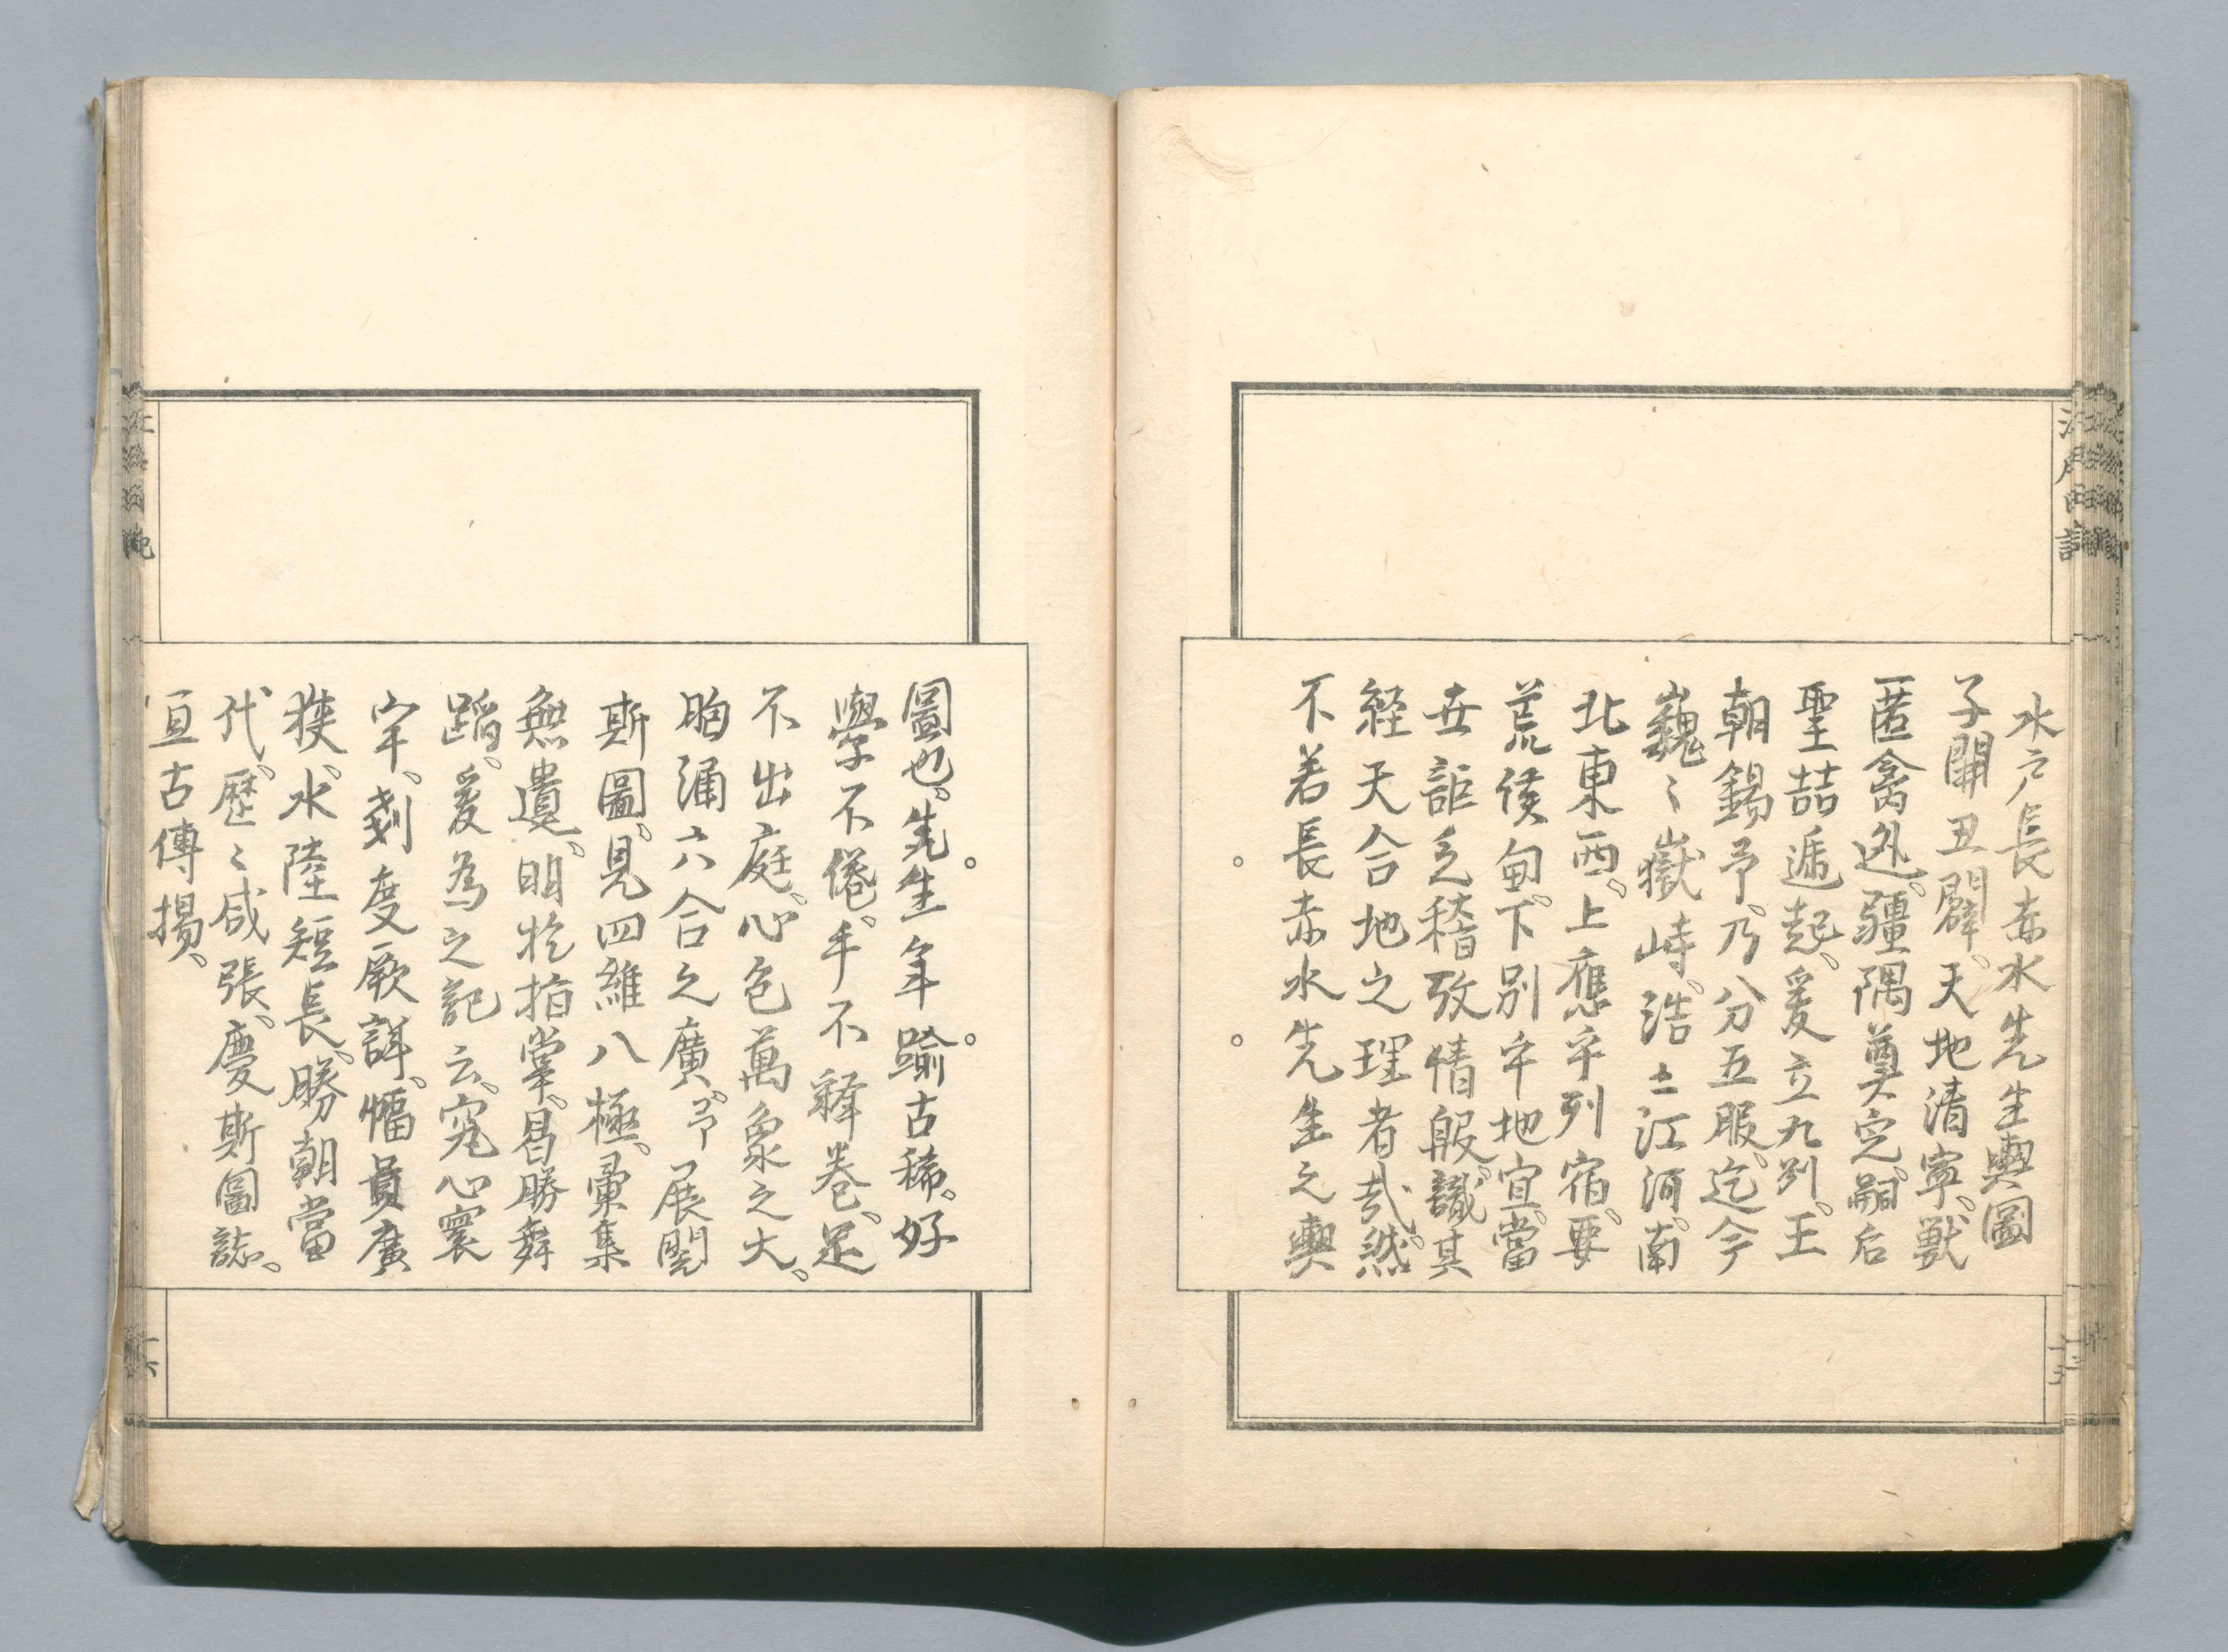 水戸長赤水先生輿圖
子開丑闢、天地清寧、獣
匿禽逃、疆隅奠定、嗣后
聖喆遞起、爰立九列、王
朝錫予、乃分五服、迄今
巍〻嶽峙、浩〻江河、南
北東西、上應乎列宿、要
荒侯甸、下別乎地宜、當
世詎乏稽攷情殷、識其
経天合地之理者哉、然
不若長赤水先生之輿
圖也、先生年踰古稀、好
學不倦、手不釋巻、足
不出庭、心包萬象之大、
胸涌六合之廣、予展閲
斯圖、見四維八極、彙集
無遺、明於指掌、曷勝舞
蹈、爰為之記云、究心寰
宇、刻度厥詳、幅員廣
狭、水陸短長、勝朝當
代、歴〻咸張、慶斯圖誌、
亘古傳揚、